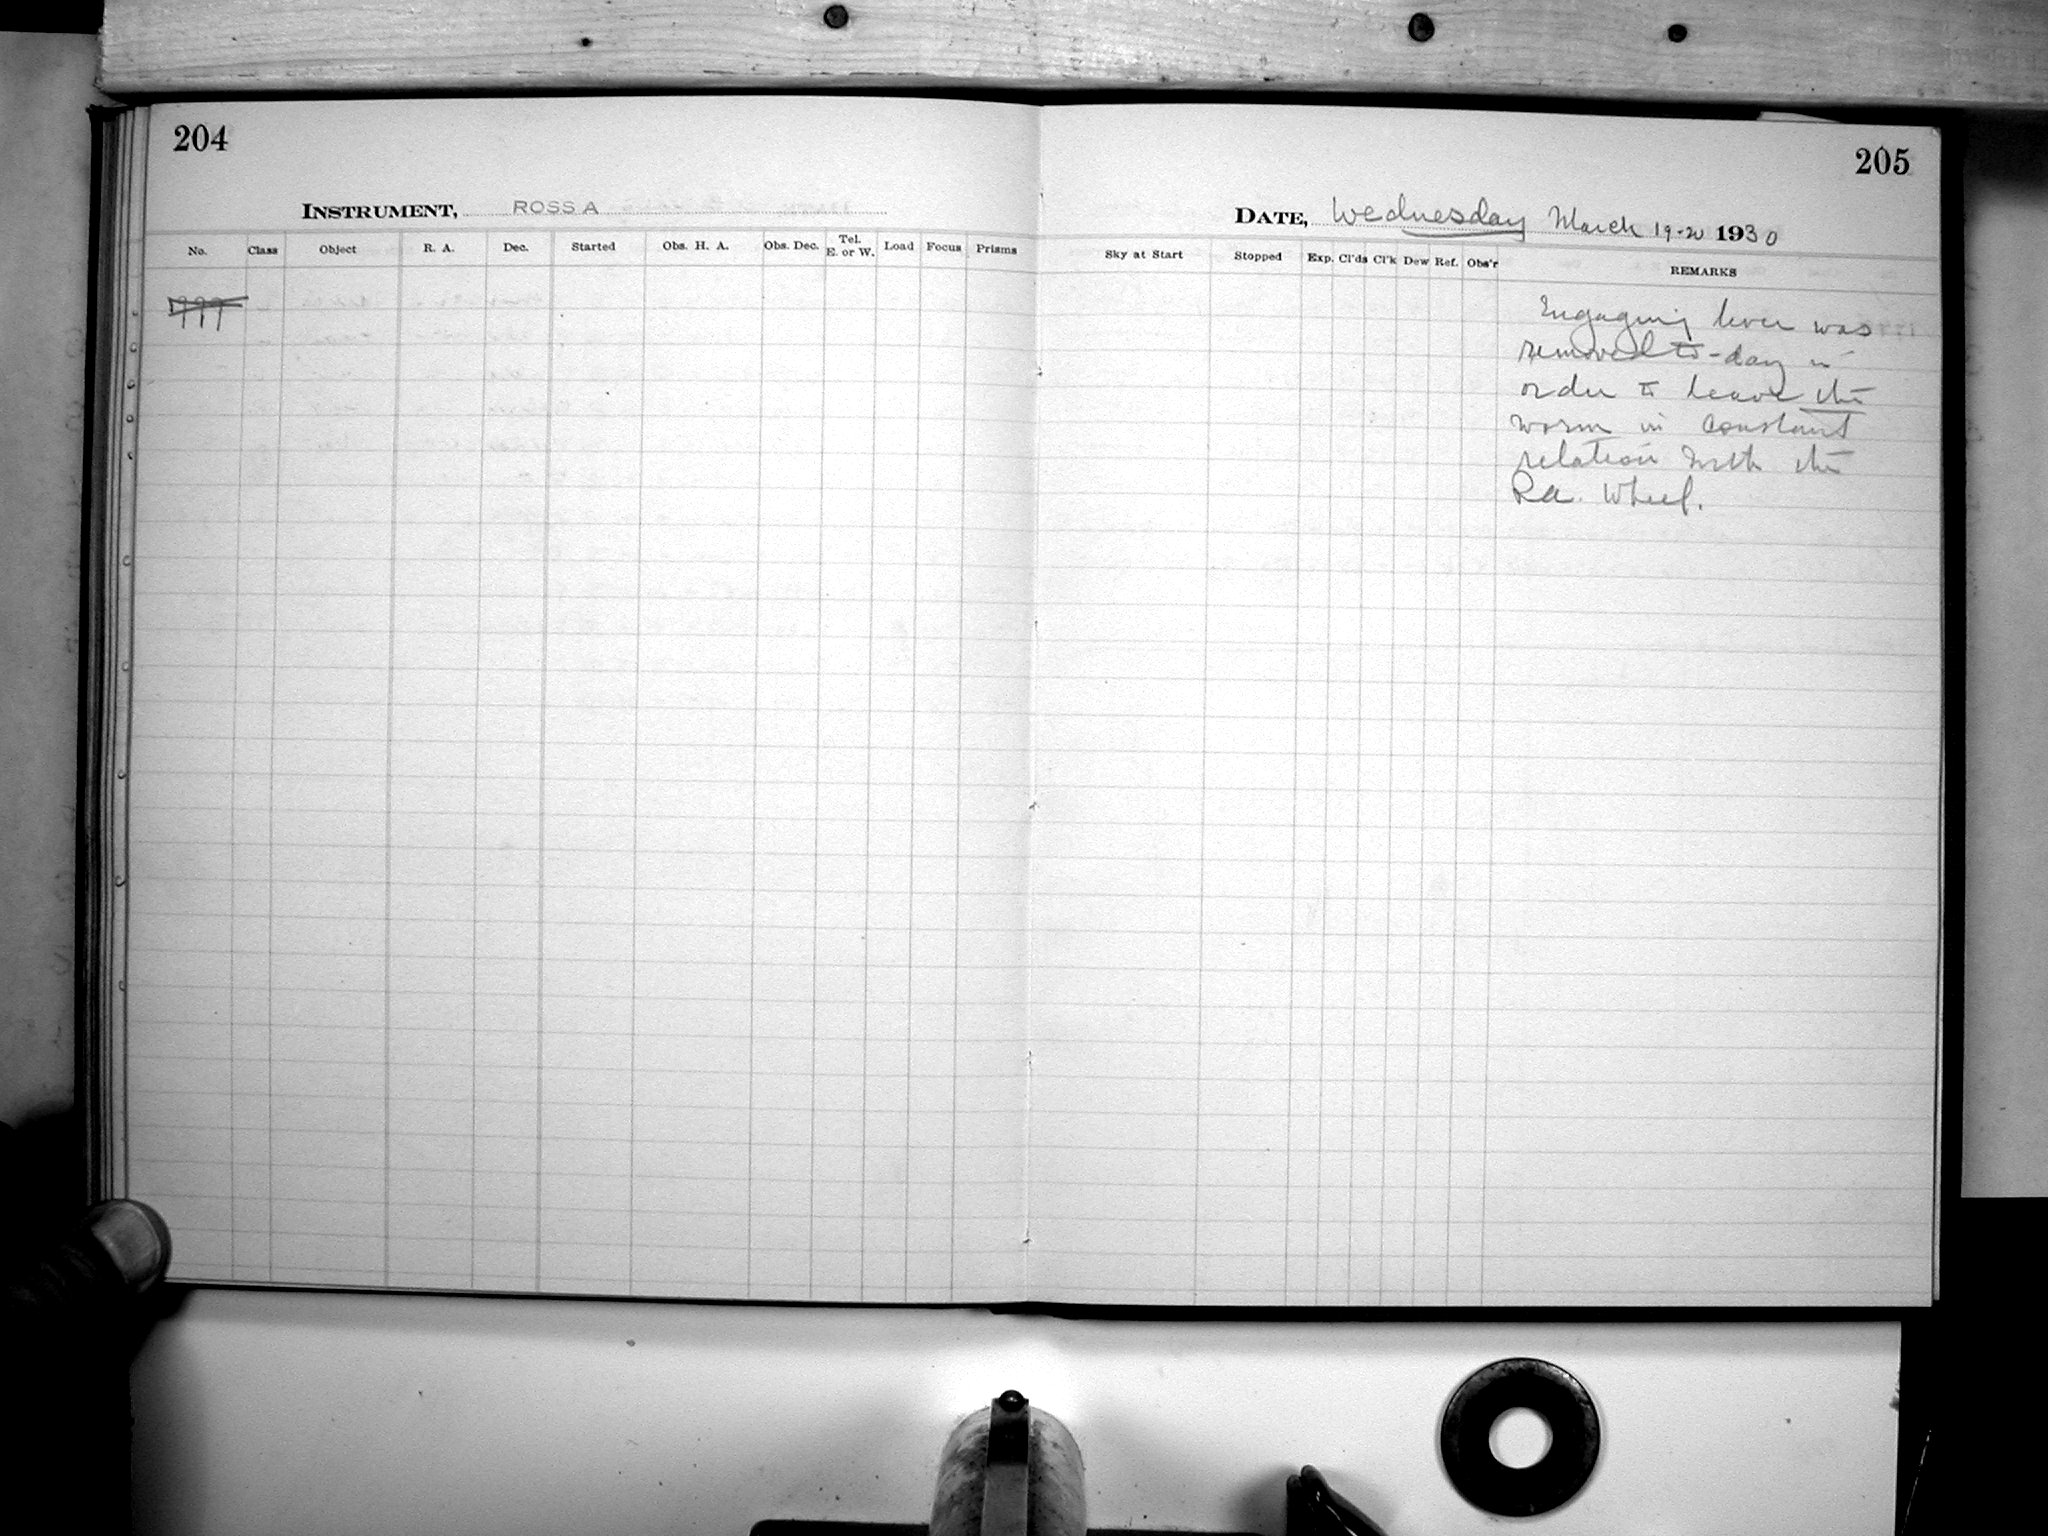 204
INSTRUMENT, ROSS A
No. Class Object R. A. Dec. Started Obs. H. A. Obs. Dec. Tel. E. or W. Load Focus Prisms
205
DATE, Wednesday March 19-20 1930
Sky at Start Stopped Exp. Cl'ds Cl'k Dew Ref. Obs'r REMARKS
Engaging lever was
removed to-day in
order to leave the
worm in constant
relation with the
Ra. Wheel.